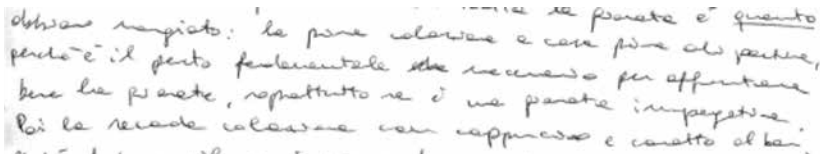 la giornata è quanto
abbiamo mangiato: la prima colazione a casa prima di partire,
perché è il pasto fondamentale necessario per affrontare
bene la giornata, soprattutto se è una giornata impegnativa.
Poi la seconda colazione con cappuccino e cornetto al bar,